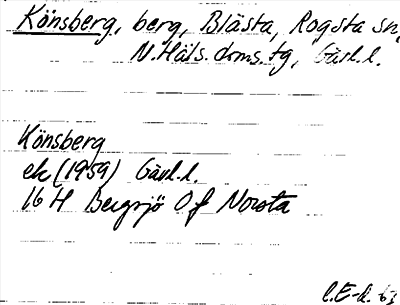 Könsberg, berg, Blästa, Rogsta sn,
N.Häls.doms.tg, Gävl.l.
Könsberg
ek (1959) Gävl.l.
16 H Bergsjö Of Norsta
C.E-R. 63